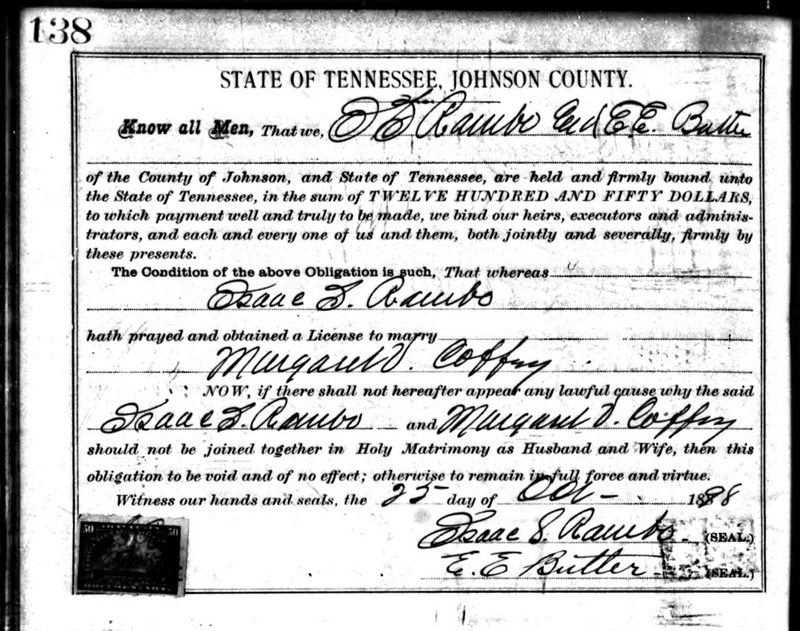 138
STATE OF TENNESSEE, JOHNSON COUNTY.
Know all Men, That we, I S Rambo and E.E. Butler
of the County of Johnson, and State of Tennessee, are held and firmly bound unto
the State of Tennessee, in the sum of TWELVE HUNDRED AND FIFTY DOLLARS,
to which payment well and truly to be made, we bind our heirs, executors and adminis-
trators, and each and every one of us and them, both jointly and severally, firmly by
these presents.
The Condition of the above Obligation is such, That whereas
Isaac S. Rambo
hath prayed and obtained a License to marry
Margaret D. Coffey
NOW, if there shall not hereafter appear any lawful cause why the said
Isaac S. Rambo and Margaret D. Coffey
should not be joined together in Holy Matrimony as Husband and Wife, then this
obligation to be void and of no effect; otherwise to remain in full force and virtue.
Witness our hands and seals, the 25 day of Oct 1898
Isaac S. Rambo (SEAL.)
E. E Butler (SEAL.)
50 50